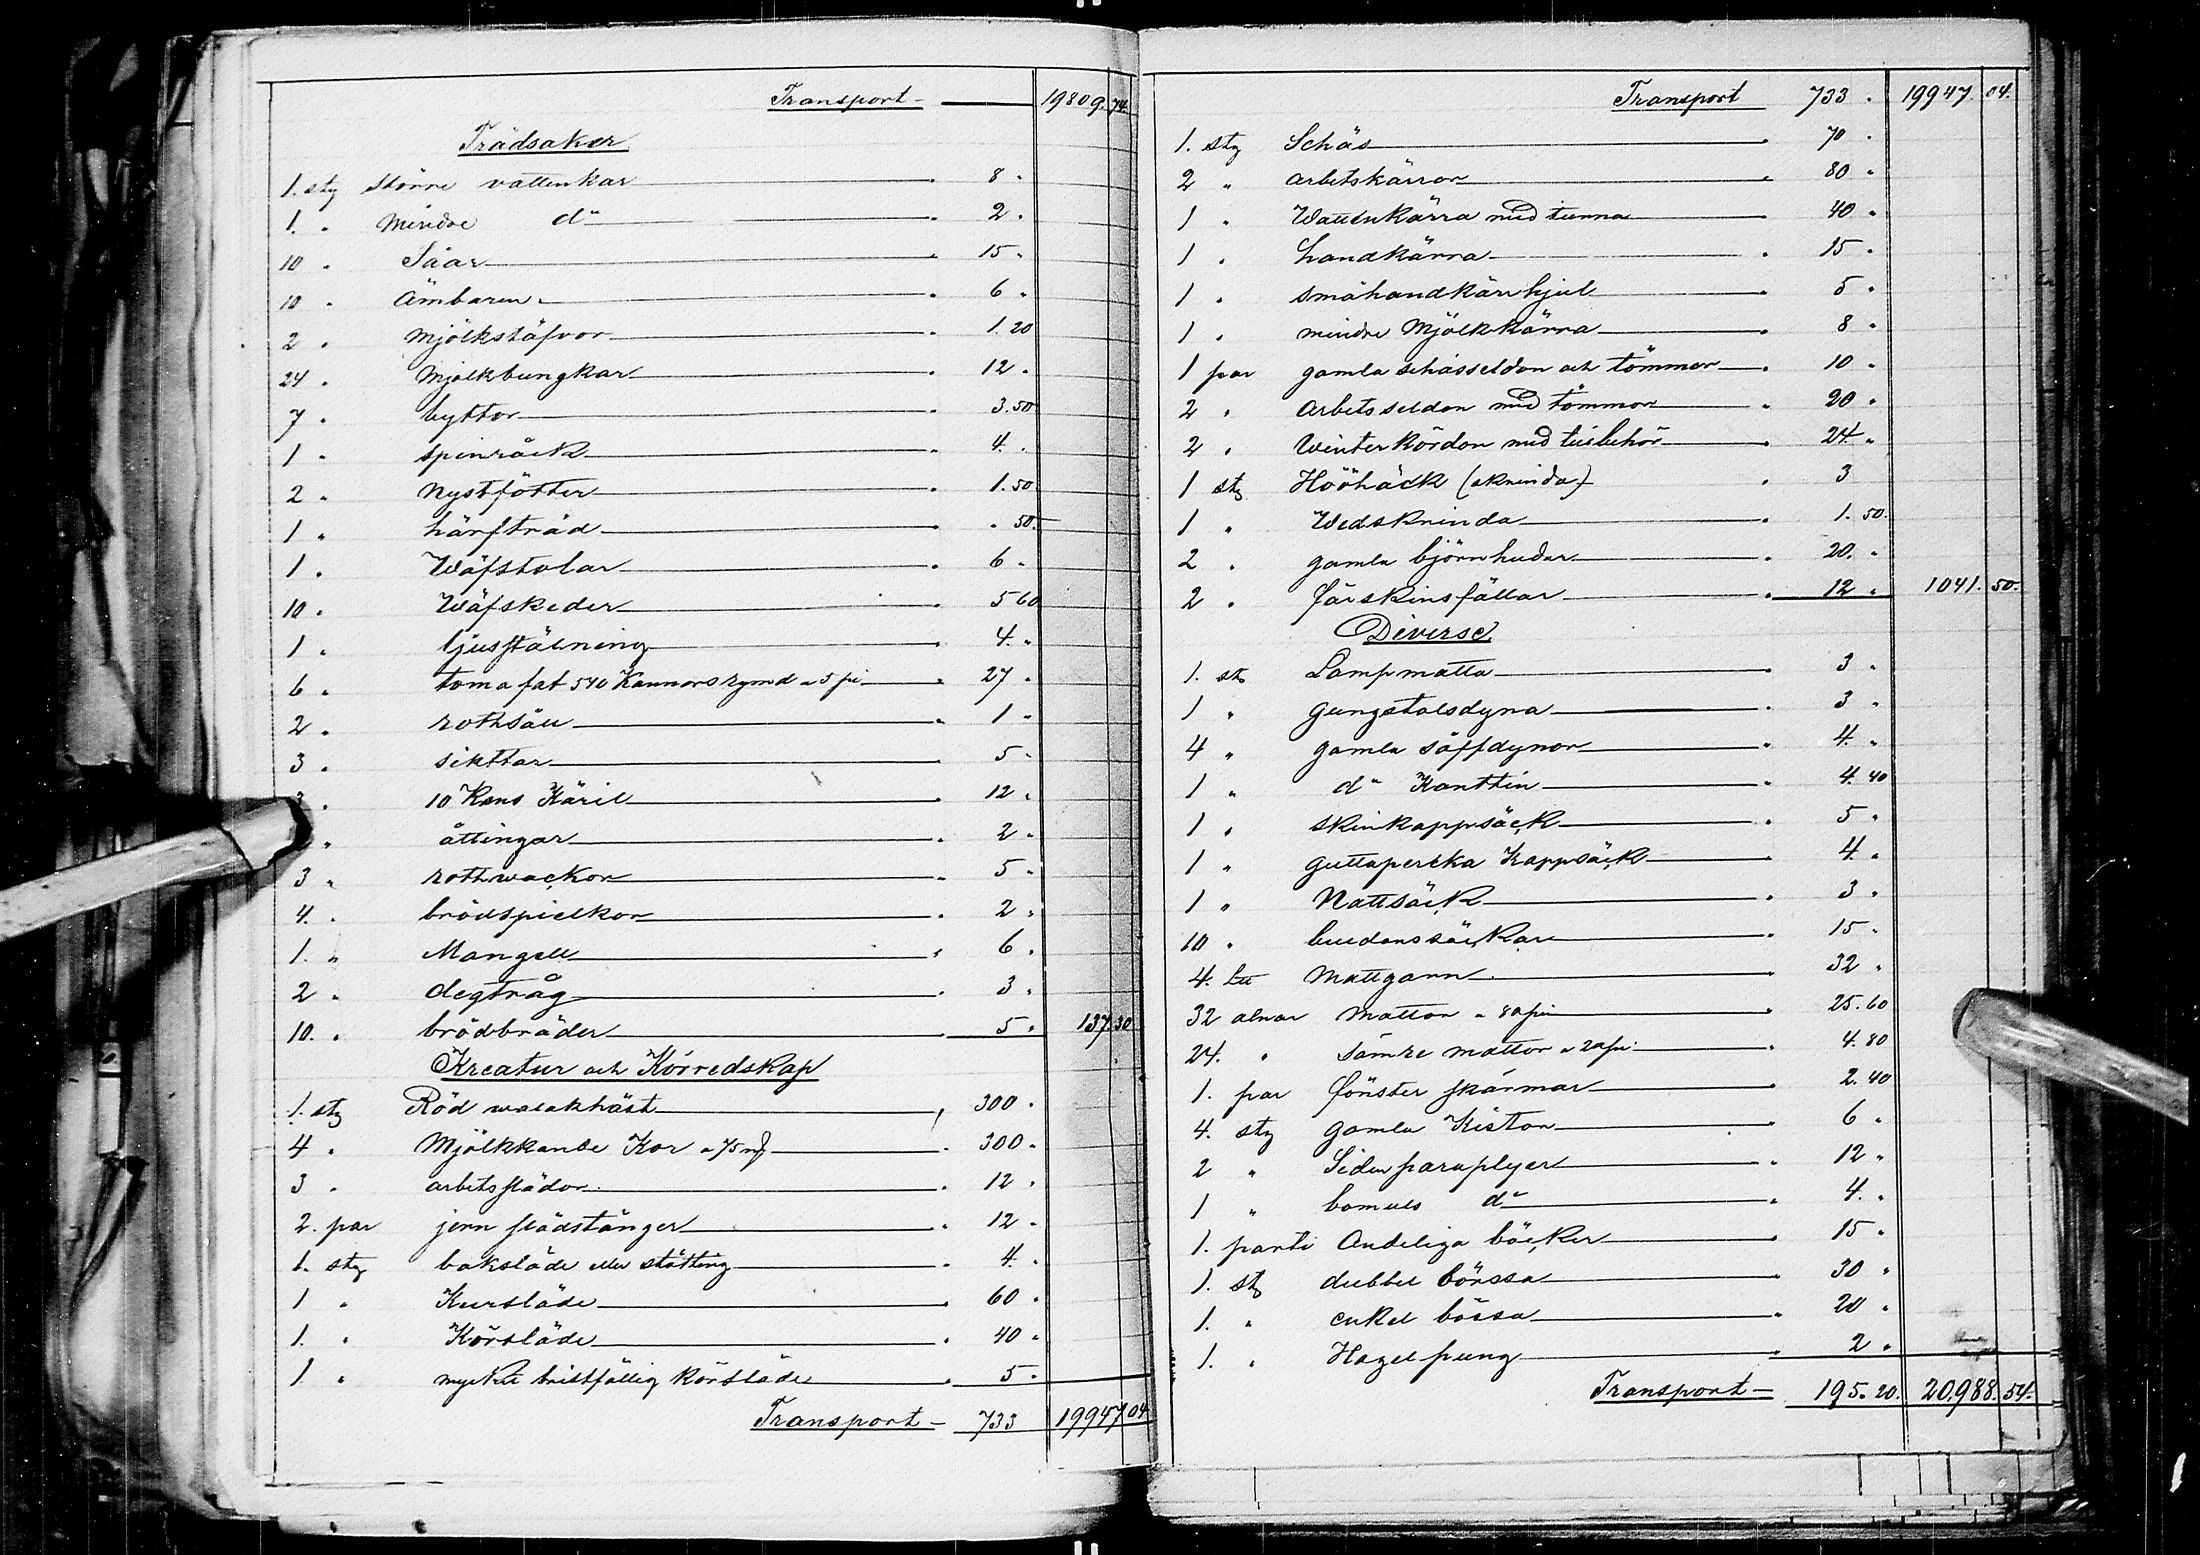 Transport — 19809.74.
Trädsaker
1. stg större vattenkar 8.
1. " Mindre d:o 2.
10 " Såar 15.
10 " Ämbaren 6.
2 " Mjölkstäfvor 1.20
24 " Mjölkbungkar 12.
7 " byttor 3.50
1 " spinråck 4.
2 " Nystfötter 1.50
1 " härfträd . 50.
1 " Wäfstolar 6.
10 " Wäfskeder 5 60
1 " ljusstälning 4.
6 " toma fat 540 Kannors rymd a 5 pi 27.
2 " rothsåll 1.
3 " sikttar 5.
" 10 Kans Käril 12.
" åttingar 2.
3 " rothwackor 5.
4. " brödspielkor 2.
1. " Mangell 6.
2 " degtråg 3.
10. " brödbräder 5. 137.30
Kreatur och Körredskap
1. stg Röd walakhäst 300.
4 " Mjölkkande Kor a 75 mk 300.
3 " arbetsslädor 12.
2. par jern slädstänger 12.
1. stg baksläde eller stötting 4.
1 " Kursläde 60.
1. " Körsläde 40.
1. " mycket bristfällig körsläde 5.
Transport — 733 19947 04
Transport 733. 19947.04.
1. stg Schäs 70.
2 " arbetskärror 80.
1 " Wattenkärra med tunna 40.
1 " handkärra 15.
1 " småhandkärrhjul 5.
1 " mindre Mjölkkärra 8.
1 par gamla schässeldon och tömmar 10.
2 " Arbetsseldon med tömmar 20.
2 " Winter kördon med tillbehör 24.
1 stg Hööhäck (skrinda) 3
1 " Wedskrinda 1.50.
2 " gamla björnhudar 20.
2 " fårskinsfällar 12. 1041.50.
Diverse
1. st Lampmatta 3.
1 " gungstolsdyna 3.
4 " gamla säffdynor 4.
1 " d:o Kanttin 4.40
1 " skinkappsäck 5.
1 " guttapercka Kappsäck 4.
1 " Nattsäck 3.
10 " buldanssäckar 15.
4. Mattgarn 32.
32 alnar Mattor a 80 pi 25.60
24. " sämre mattor a 20 pi 4.80
1. par fönster skärmar 2.40
4. stg gamla Kistor 6.
2 " Siden paraplyer 12.
1 " bomuls d:o 4.
1. parti Andeliga böcker 15.
1. stg dubbel börssa 30.
1. " enkel bössa 20.
1. " Hagelpung 2.
Transport — 195.20. 20.988.54.